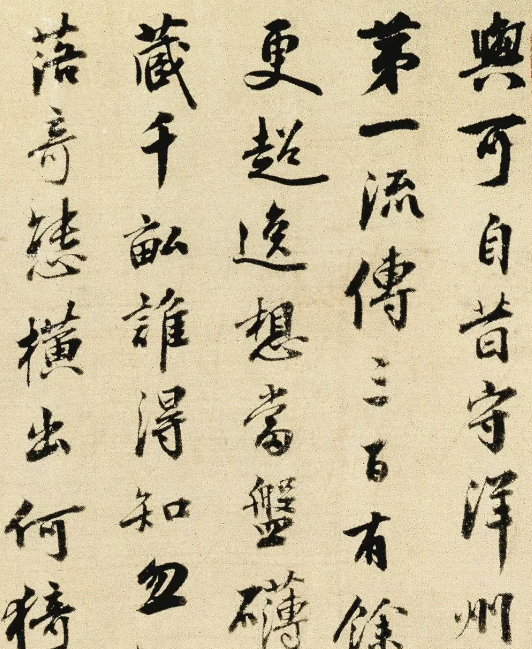 與可自昔守洋州
第一流傳三百有餘
更超逸想當盤礴
藏千畝誰得知忽
落奇態橫出何猗